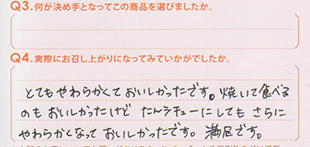 Q3.何が決め手となってこの商品を選びましたか。
Q4.実際にお召し上がりになってみていかがでしたか。
とてもやわらかくておいしかったです。焼いて食べる
のもおいしかったけど たんシチューにしても さらに
やわらかくなって おいしかったです。満足です。